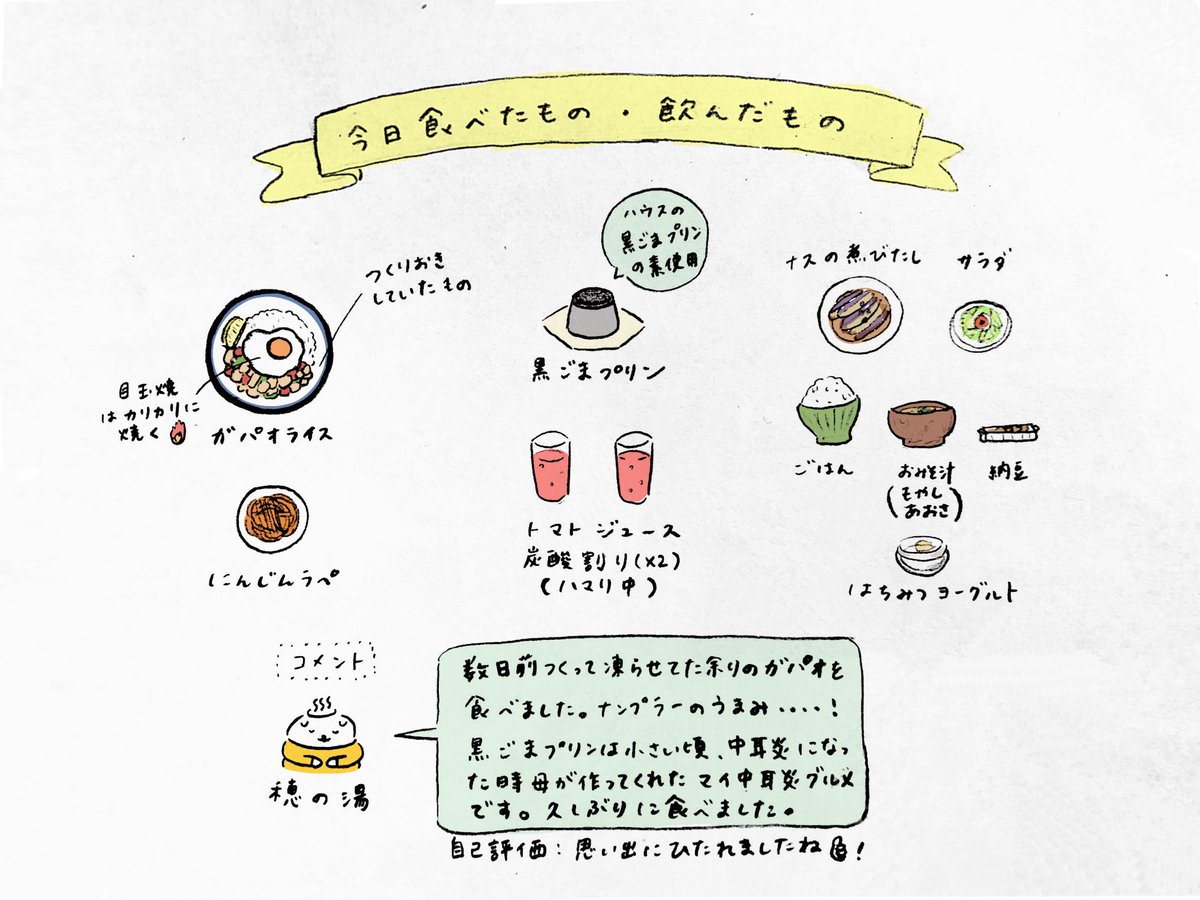 今日食べたもの・飲んだもの
つくりおき
していたもの
目玉焼
はカリカリに
焼く
ガパオライス
にんじんラペ
ハウスの
黒ごまプリン
の素使用
黒ごまプリン
トマトジュース
炭酸割り(×2)
(ハマり中)
ナスの煮びたし
サラダ
ごはん
おみそ汁
(もやし
あおさ)
納豆
はちみつヨーグルト
コメント
穂の湯
数日前つくって凍らせてた余りのガパオを
食べました。ナンプラーのうまみ....!
黒ごまプリンは小さい頃、中耳炎になっ
た時母が作ってくれたマイ中耳炎グルメ
です。久しぶりに食べました。
自己評価:思い出にひたれましたね!